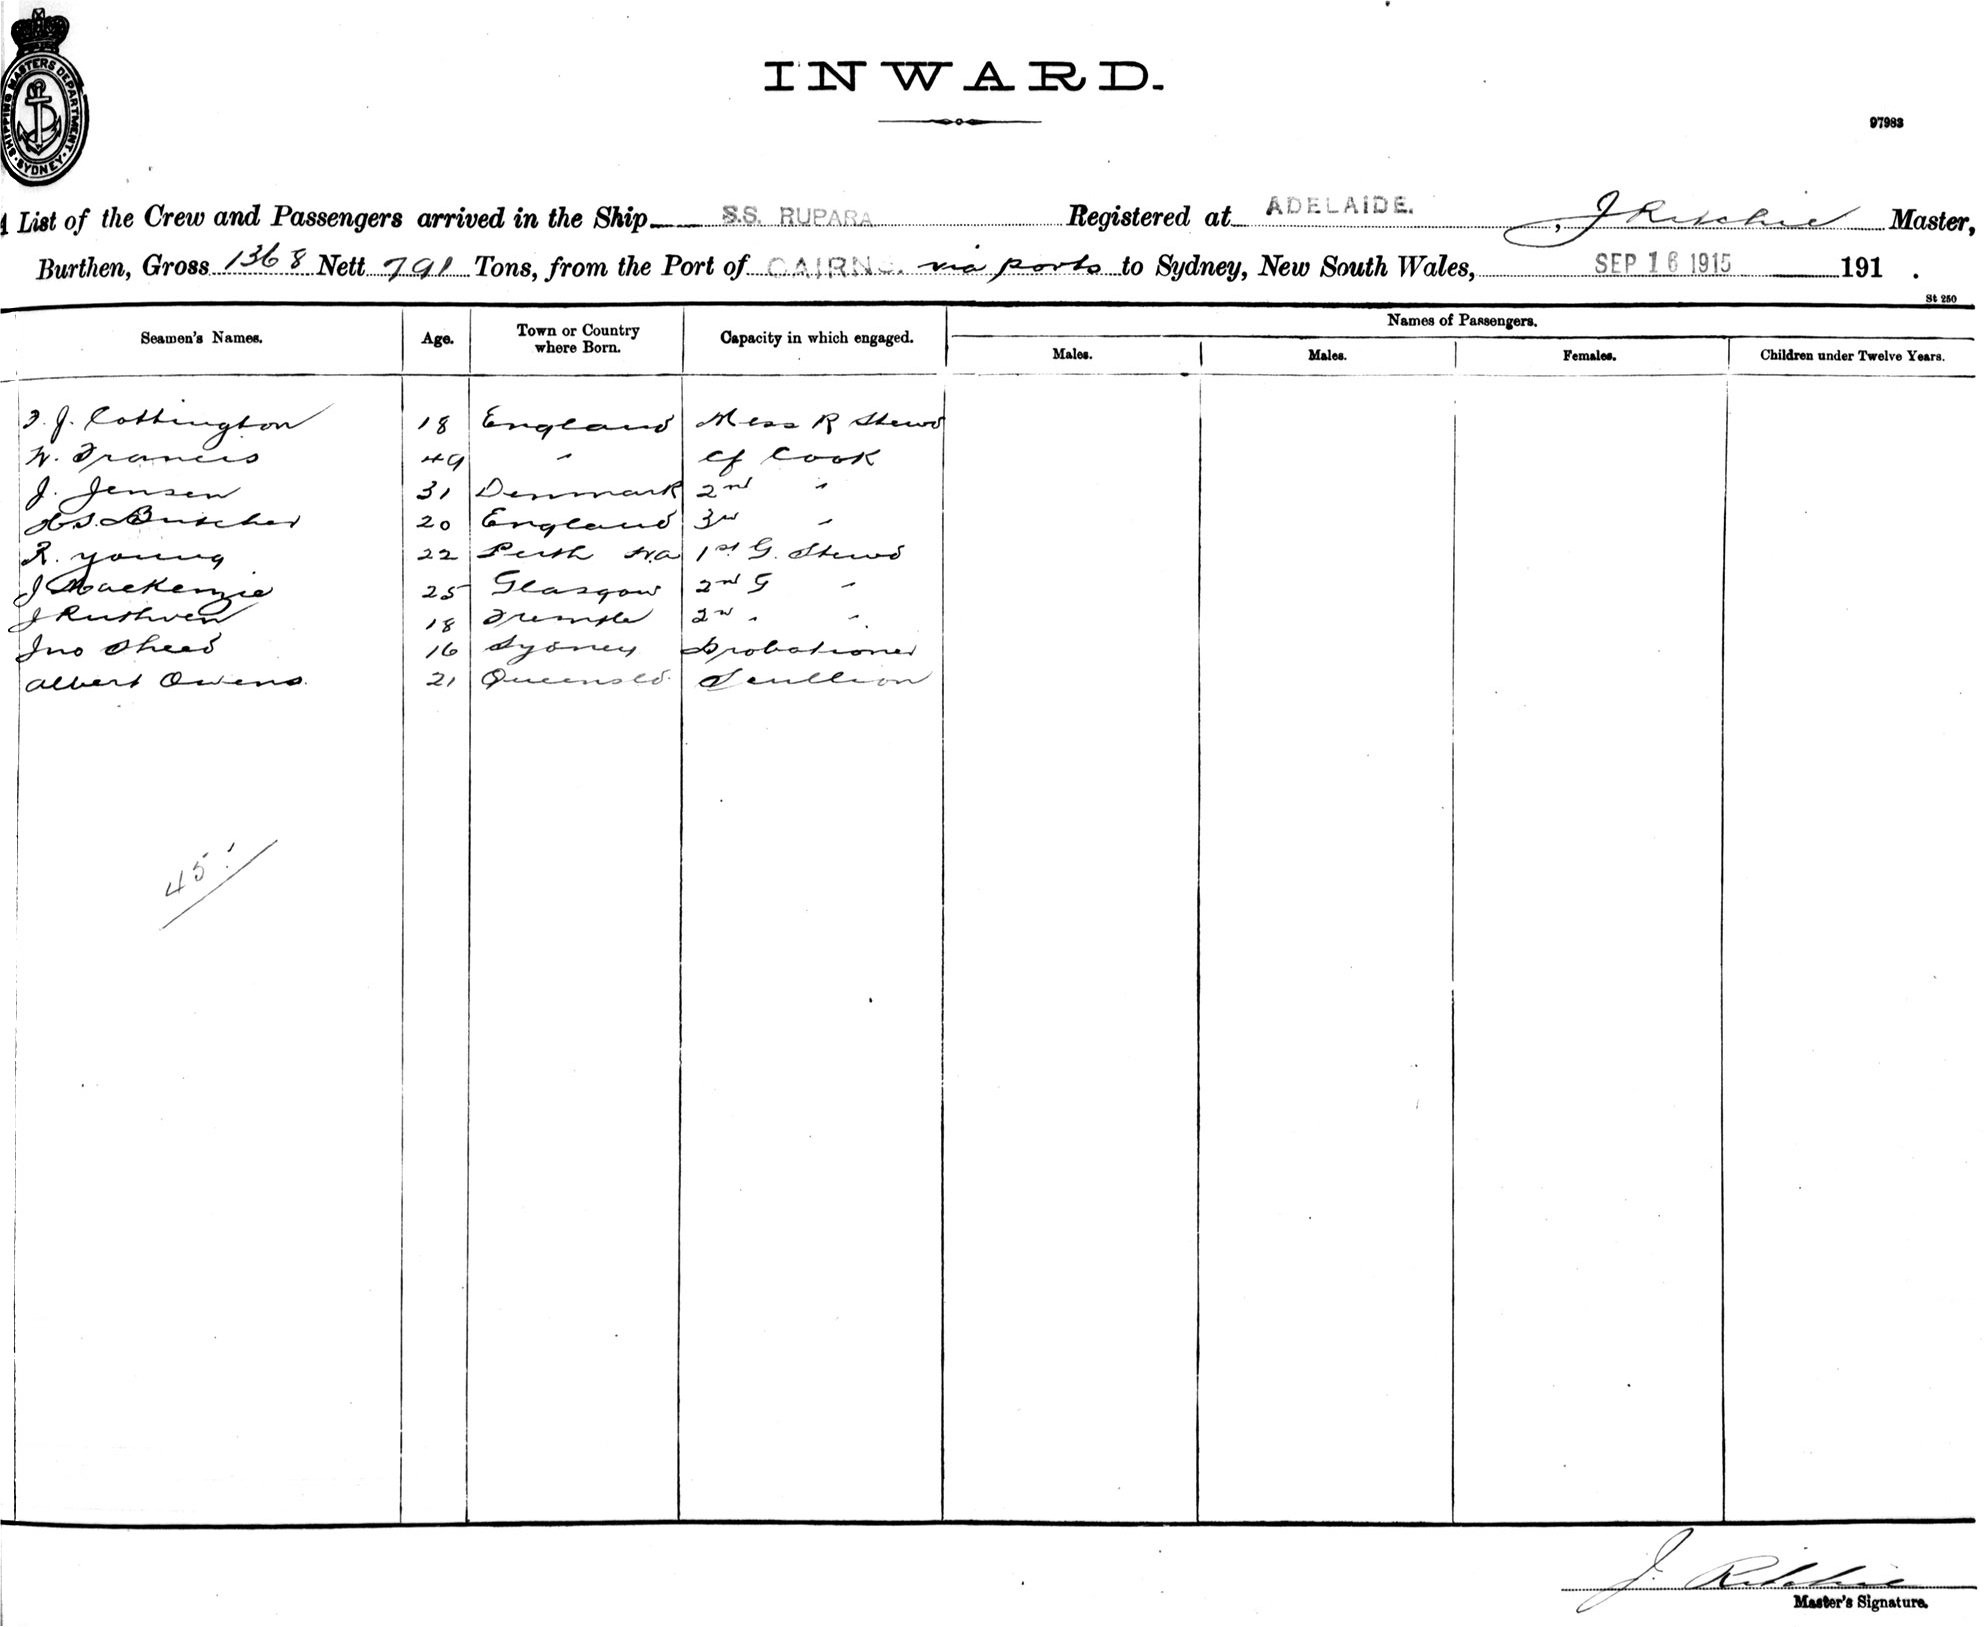 SHIPPING MASTERS DEPARTMENT · SYDNEY ·
INWARD.
97983
A List of the Crew and Passengers arrived in the Ship S.S. RUPARA Registered at ADELAIDE. , J Ritchie Master,
Burthen, Gross 1368 Nett 791 Tons, from the Port of CAIRNS. via ports to Sydney, New South Wales, SEP 16 1915 191 .
St 250
Seamen's Names. Age. Town or Country where Born. Capacity in which engaged. Names of Passengers.
Males. Males. Females. Children under Twelve Years.
J. Cottington 18 England Mess R Stewd
W. Francis 49 " Cf Cook
J. Jensen 31 Denmark 2nd "
Butcher 20 England 3rd "
R. Young 22 Perth W.A 1st G. Stewd
J MacKenzie 25 Glasgow 2nd G "
J Ruthven 18 2nd " "
Jno Sheed 16 Sydney Probationer
Albert Owens. 21 Queensld. Scullion
45
J. Ritchie
Master's Signature.